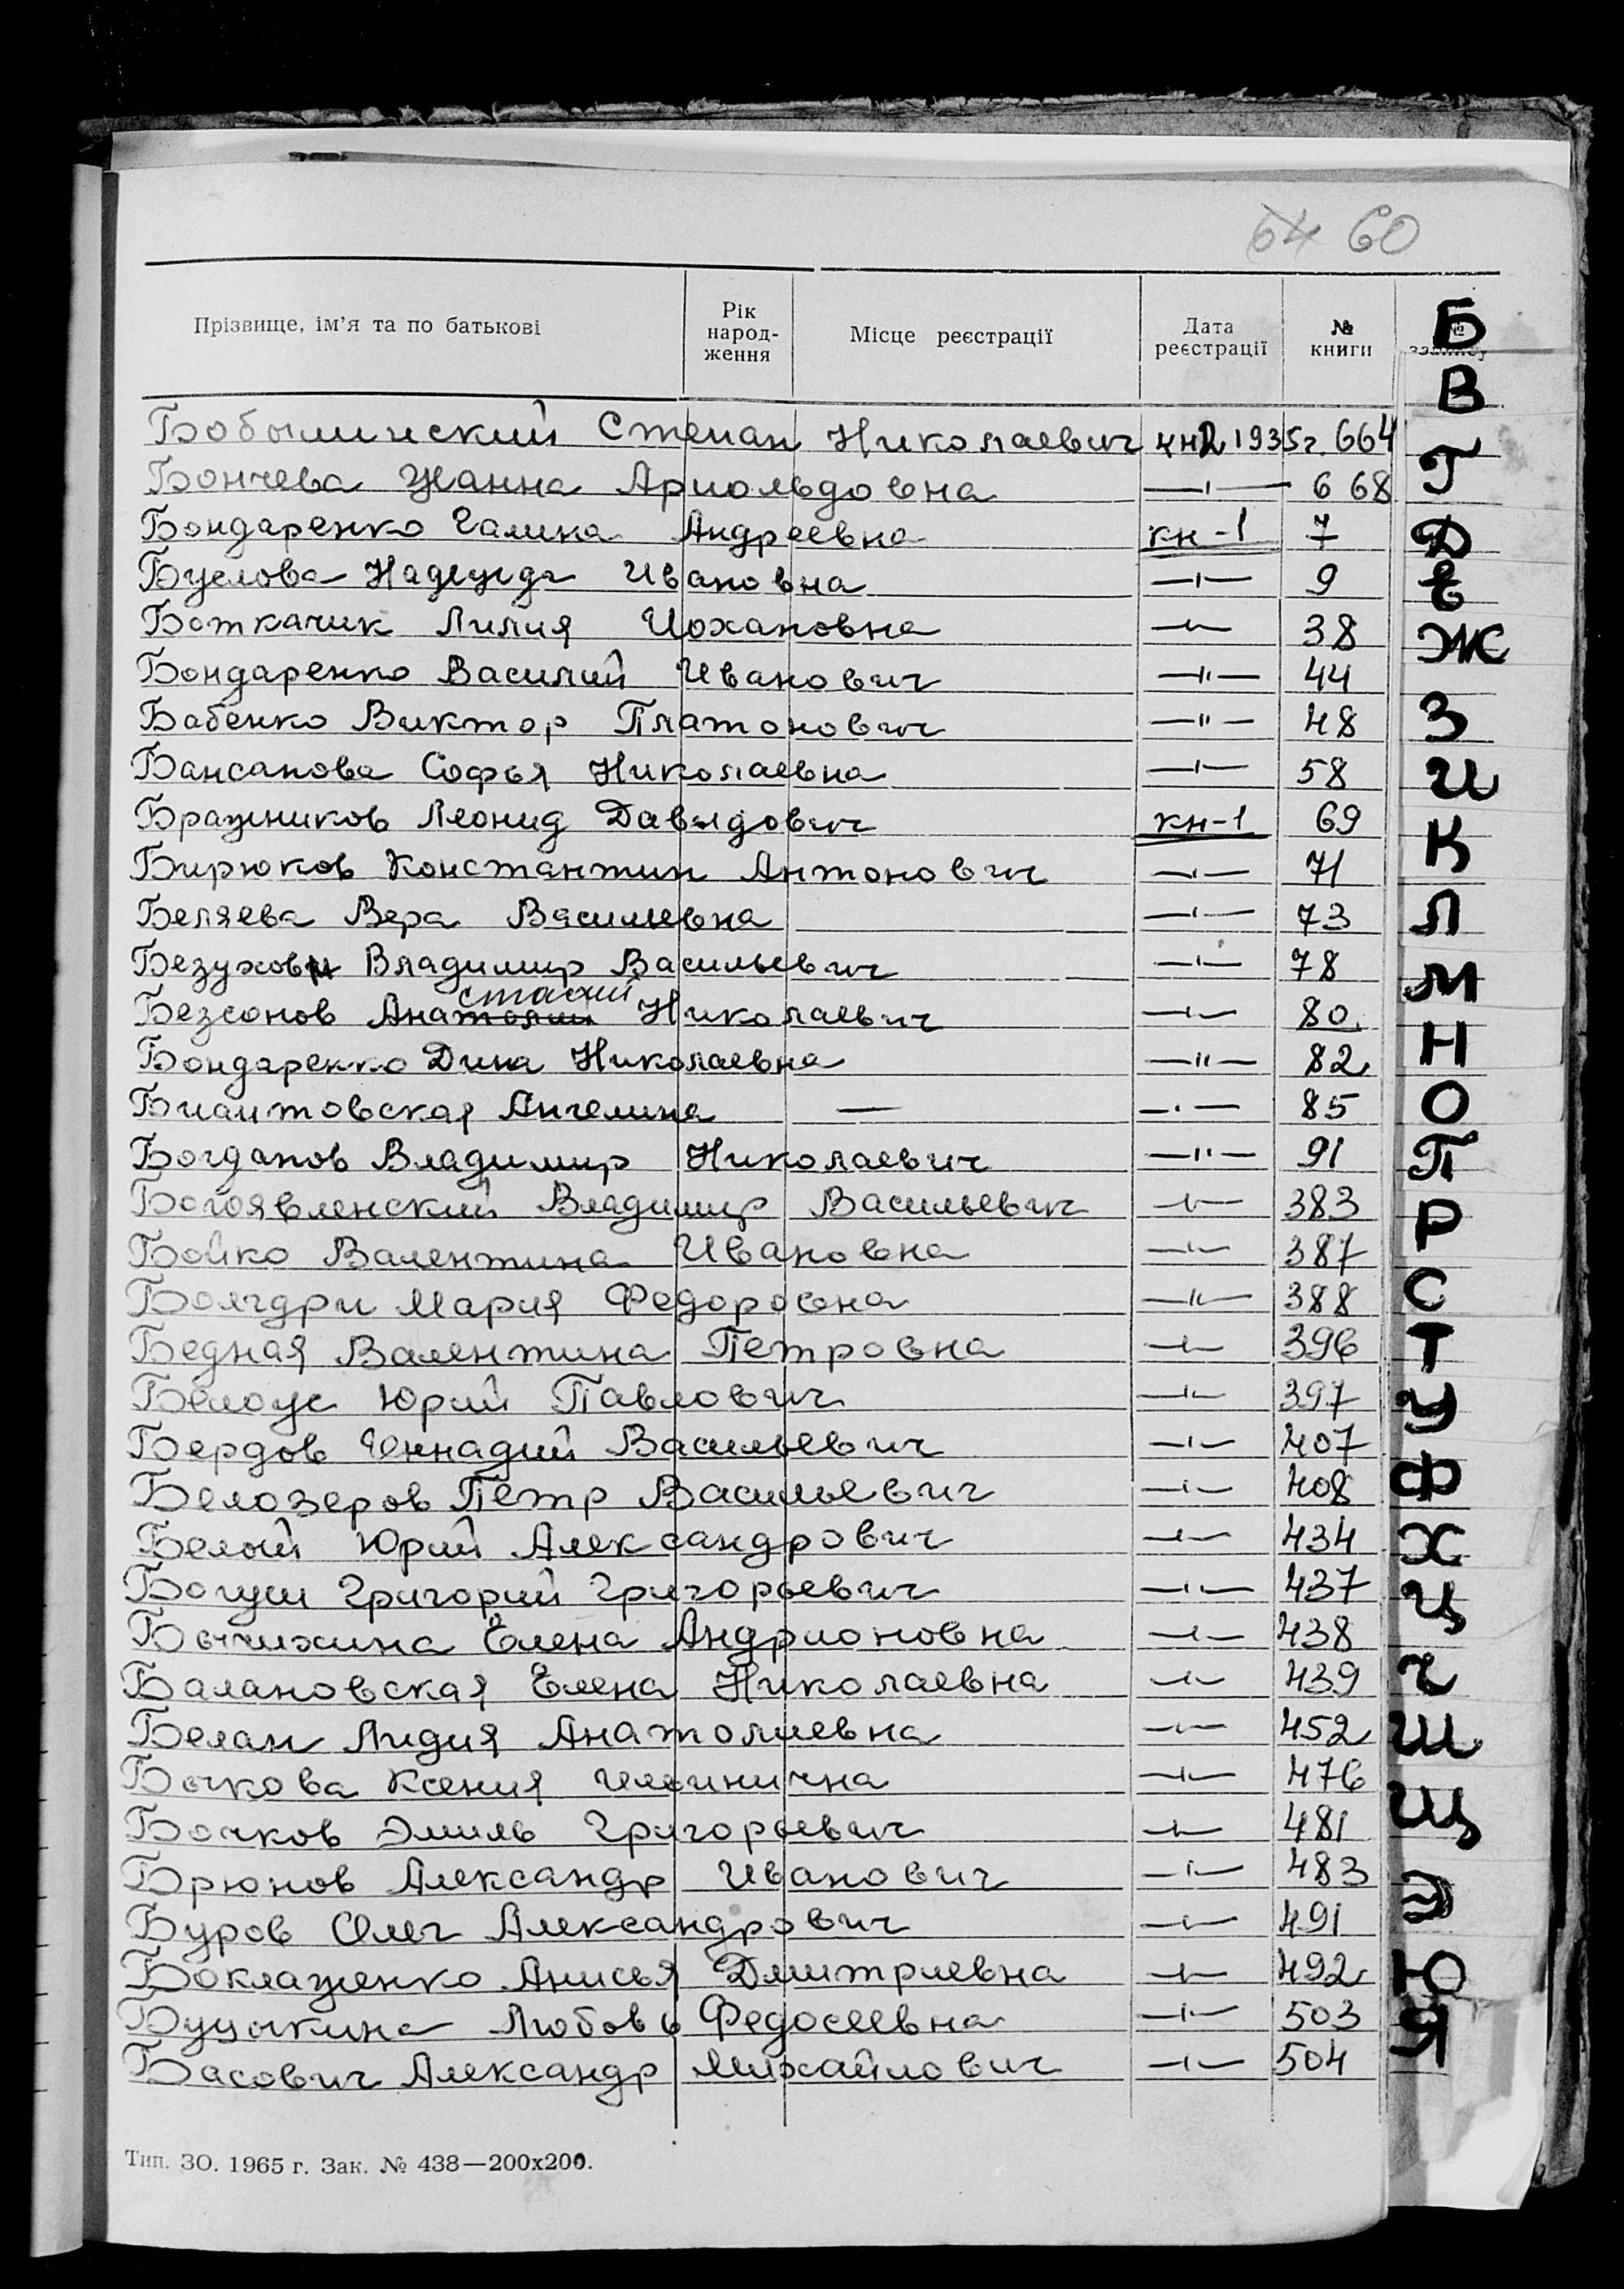 64 60
Прізвище, ім'я та по батькові Рік народ-ження Місце реєстрації Дата реєстрації № книги № запису
Бобылинский Степан Николаевич кн2 1935г. 664
Бончева Жанна Арнольдовна —"— 668
Бондаренко Галина Андреевна кн-1 7
Буслова Надежда Ивановна —"— 9
Боткачик Лилия Иохановна —"— 38
Бондаренко Василий Иванович —"— 44
Бабенко Виктор Платонович —"— 48
Бансанова Софья Николаевна —"— 58
Бражников Леонид Давыдович кн-1 69
Бирюков Константин Антонович —"— 71
Беляева Вера Васильевна —"— 73
Безуховы Владимир Васильевич —"— 78
стасий
Безсонов Анатолий Николаевич —"— 80
Бондаренко Дина Николаевна —"— 82
Ангелина — —"— 85
Богданов Владимир Николаевич —"— 91
Богоявленский Владимир Васильевич —"— 383
Бойко Валентина Ивановна —"— 387
Болгдри Мария Федоровна —"— 388
Бедная Валентина Петровна —"— 396
Белоус Юрий Павлович —"— 397
Бердов Геннадий Васильевич —"— 407
Белозеров Петр Васильевич —"— 408
Белый Юрий Александрович —"— 434
Богуш Григорий Григорьевич —"— 437
Елена Андрионовна —"— 438
Балановская Елена Николаевна —"— 439
Белан Лидия Анатолиевна —"— 452
Бычкова Ксения Ильинична —"— 476
Бочков Эмиль Григорьевич —"— 481
Брюнов Александр Иванович —"— 483
Буров Олег Александрович —"— 491
Боклаженко Анисья Дмитриевна —"— 492
Буцыкина Любовь Федосеевна —"— 503
Басович Александр Михайлович —"— 504
Тип. ЗО. 1965 г. Зак. № 438—200х200.
Б
В
Г
Д
Е
Ж
З
И
К
Л
М
Н
О
П
Р
С
Т
У
Ф
Х
Ц
Ч
Ш
Щ
Э
Ю
Я